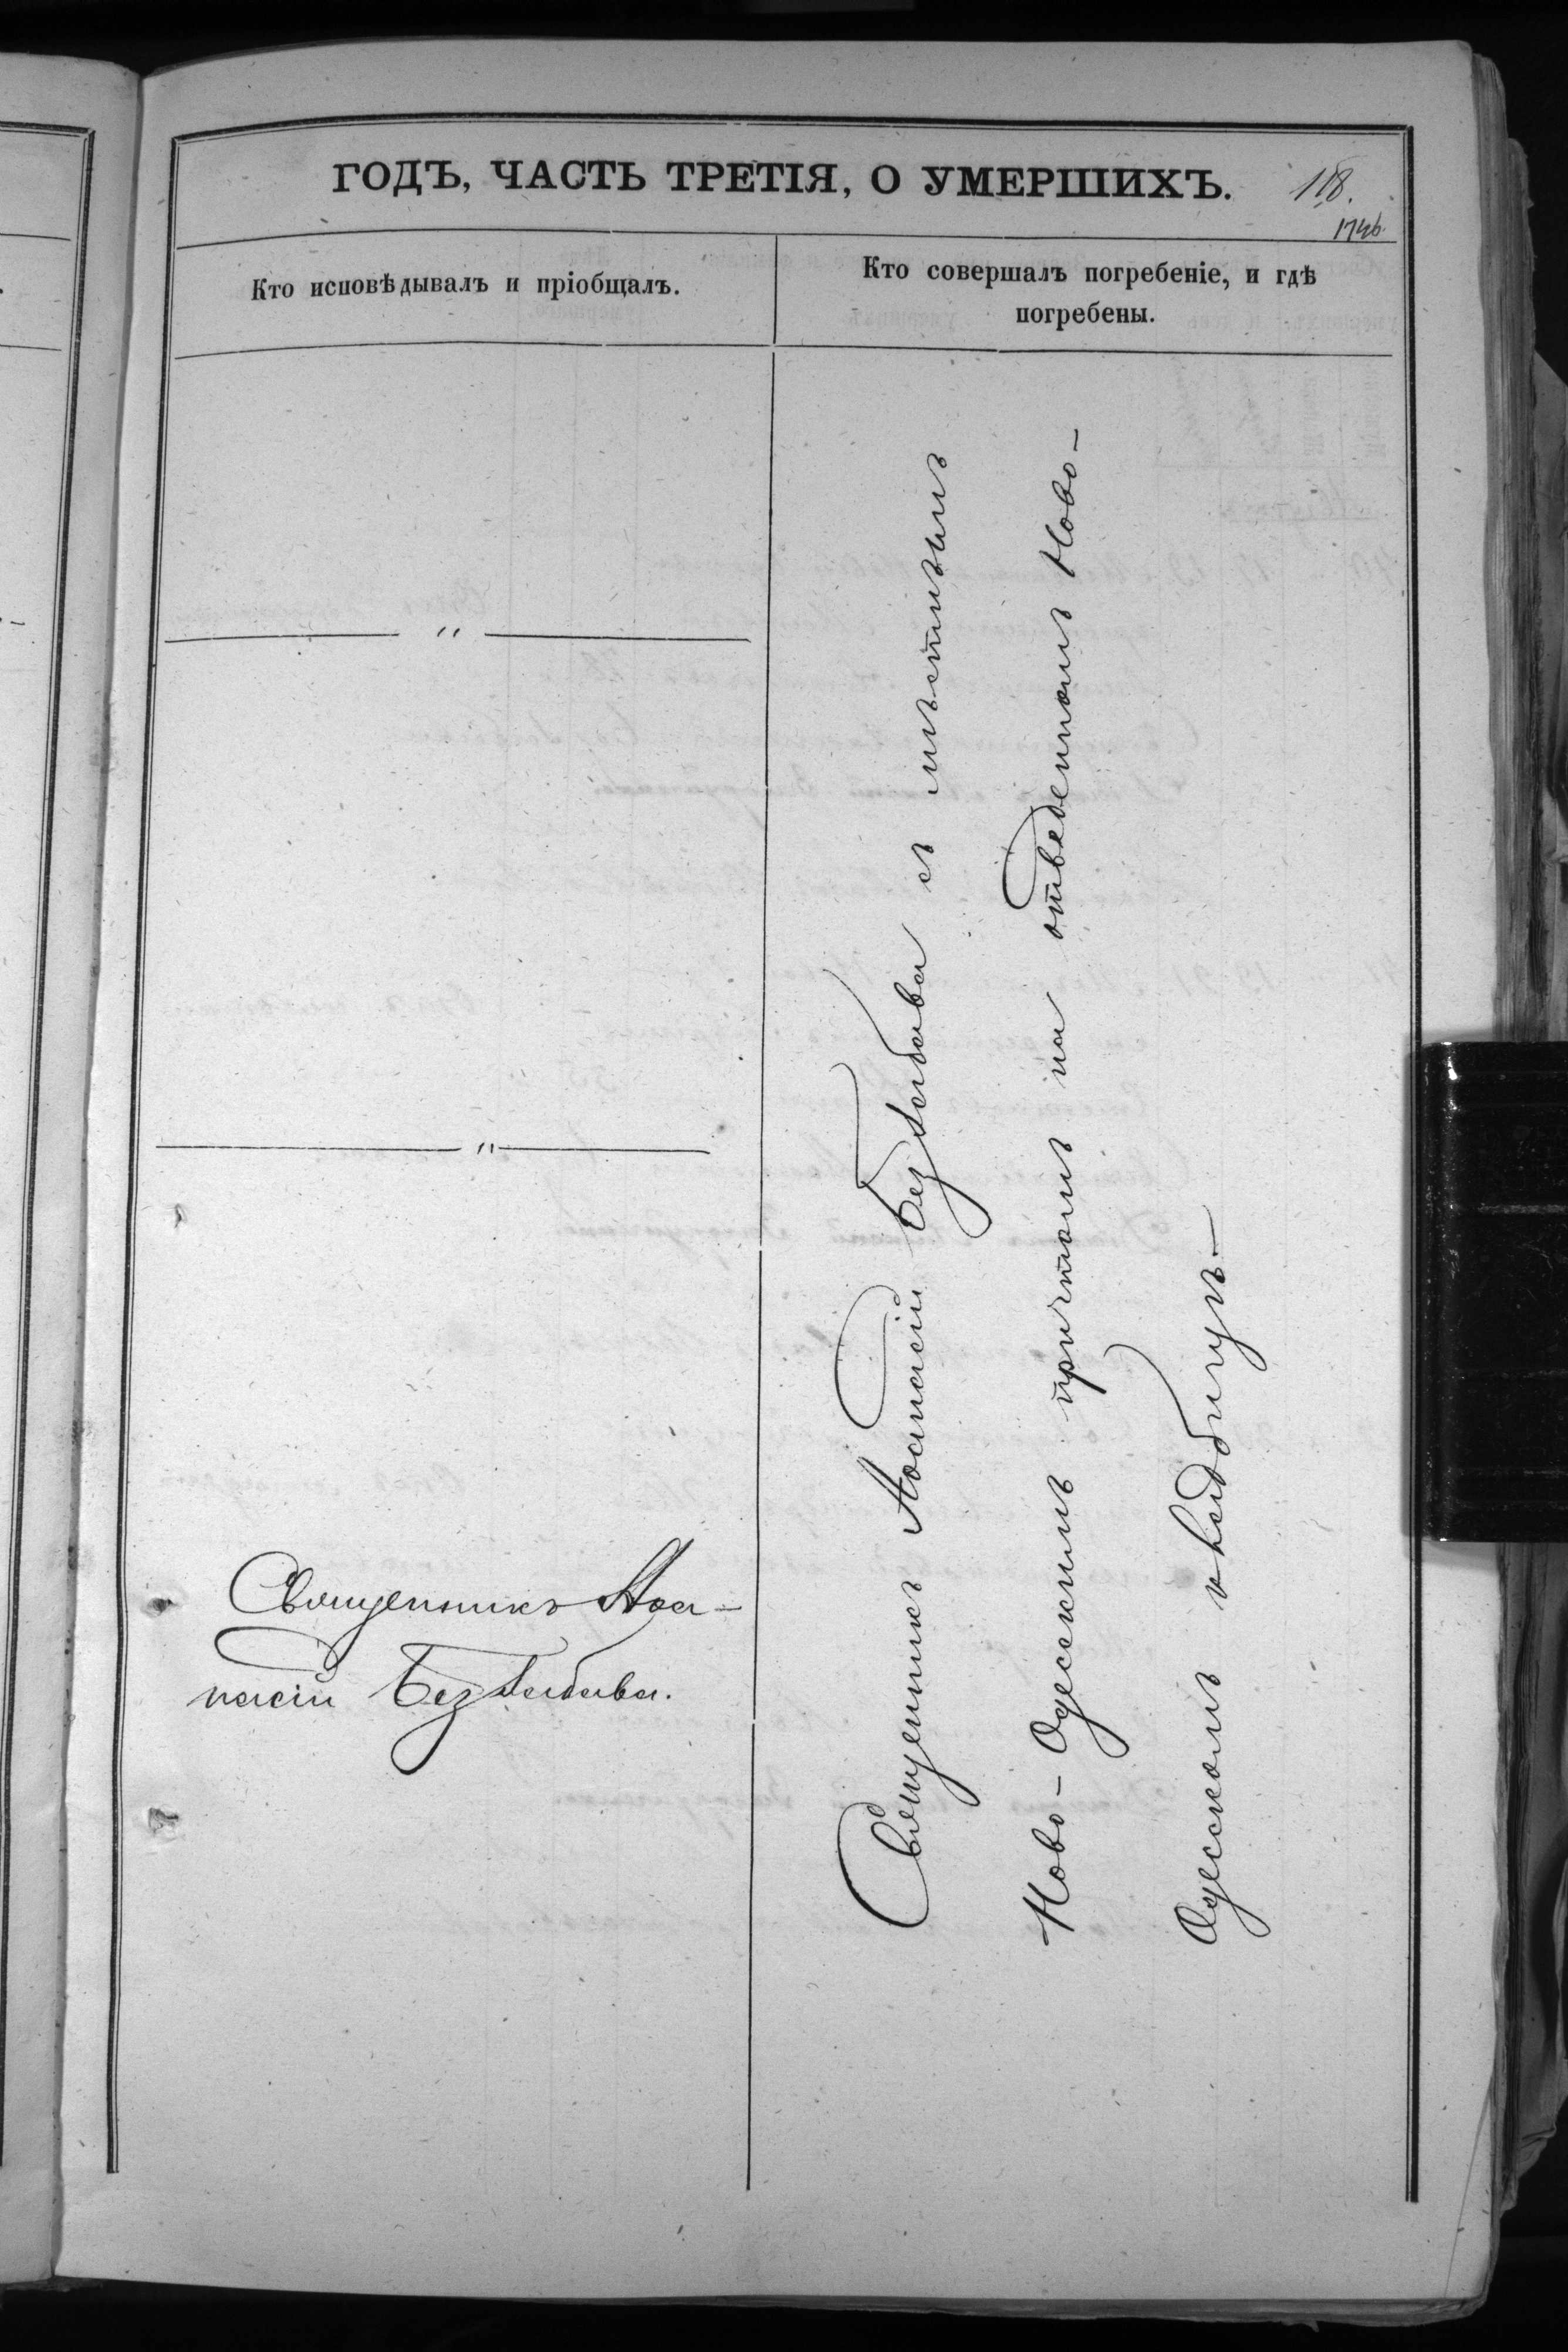 ГОДЪ, ЧАСТЬ ТРЕТІЯ, О УМЕРШИХЪ.
118.
Кто исповѣдывалъ и пріобщалъ.
Кто совершалъ погребеніе, и гдѣ
погребены.
— " —
— " —
Священникъ Аѳа-
насій Беззабава.
Священникъ Аѳанасій Беззабава съ мѣстнымъ
Ново-Одесскимъ причтомъ на отведенномъ Ново-
Одесскомъ кладбищѣ.—